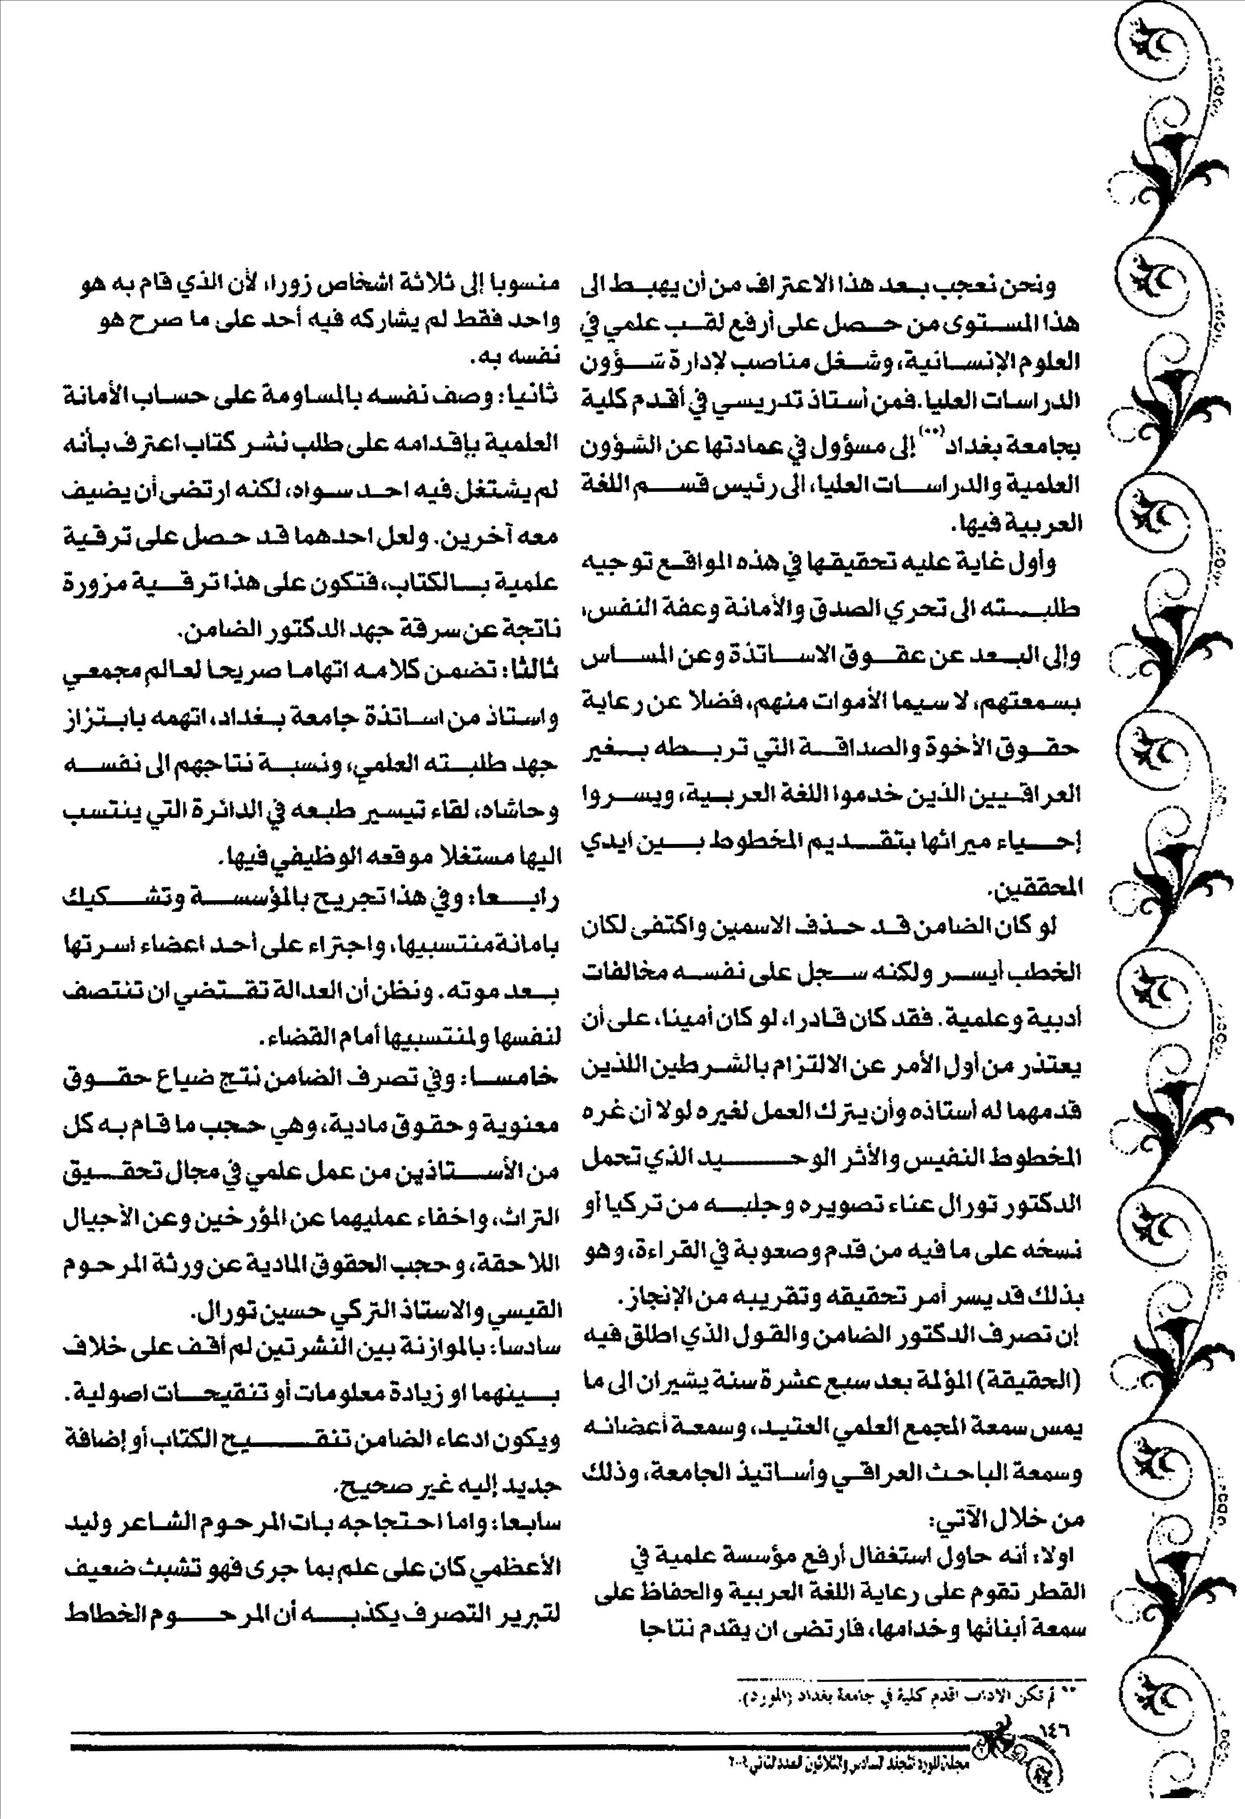 ونحن نعجب بعد هذا الاعتراف من أن يهبط الى
هذا المستوى من حصل على أرفع لقب علمي في
العلوم الإنسانية، وشغل مناصب لإدارة شؤون
الدراسات العليا.فمن أستاذ تدريسي في أقدم كلية
بجامعة بغداد(**) إلى مسؤول في عمادتها عن الشؤون
العلمية والدراسات العليا، الى رئيس قسم اللغة
العربية فيها.
وأول غاية عليه تحقيقها في هذه المواقع توجيه
طلبته الى تحري الصدق والأمانة وعفة النفس،
وإلى البعد عن عقوق الاساتذة وعن المساس
بسمعتهم، لا سيما الأموات منهم، فضلا عن رعاية
حقوق الأخوة والصداقة التي تربطه بغير
العراقيين الذين خدموا اللغة العربية، ويسروا
إحياء ميراثها بتقديم المخطوط بين ايدي
المحققين.
لو كان الضامن قد حذف الاسمين واكتفى لكان
الخطب أيسر ولكنه سجل على نفسه مخالفات
أدبية وعلمية. فقد كان قادرا، لو كان أمينا، على أن
يعتذر من أول الأمر عن الالتزام بالشرطين اللذين
قدمهما له أستاذه وأن يترك العمل لغيره لولا أن غره
المخطوط النفيس والأثر الوحيد الذي تحمل
الدكتور تورال عناء تصويره وجلبه من تركيا أو
نسخه على ما فيه من قدم وصعوبة في القراءة، وهو
بذلك قد يسر أمر تحقيقه وتقريبه من الإنجاز.
إن تصرف الدكتور الضامن والقول الذي اطلق فيه
(الحقيقة) المؤلمة بعد سبع عشرة سنة يشيران الى ما
يمس سمعة المجمع العلمي العتيد، وسمعة أعضائه
وسمعة الباحث العراقي وأساتيذ الجامعة، وذلك
من خلال الآتي:
اولا: أنه حاول استغفال أرفع مؤسسة علمية في
القطر تقوم على رعاية اللغة العربية والحفاظ على
سمعة أبنائها وخدامها، فارتضى ان يقدم نتاجا
منسوبا إلى ثلاثة اشخاص زورا، لأن الذي قام به هو
واحد فقط لم يشاركه فيه أحد على ما صرح هو
نفسه به.
ثانيا: وصف نفسه بالمساومة على حساب الأمانة
العلمية بإقدامه على طلب نشر كتاب اعترف بأنه
لم يشتغل فيه احد سواه، لكنه ارتضى أن يضيف
معه آخرين. ولعل احدهما قد حصل على ترقية
علمية بالكتاب، فتكون على هذا ترقية مزورة
ناتجة عن سرقة جهد الدكتور الضامن.
ثالثا: تضمن كلامه اتهاما صريحا لعالم مجمعي
واستاذ من اساتذة جامعة بغداد، اتهمه بابتزاز
جهد طلبته العلمي، ونسبة نتاجهم الى نفسه
وحاشاه، لقاء تيسير طبعه في الدائرة التي ينتسب
اليها مستغلا موقعه الوظيفي فيها.
رابعا: وفي هذا تجريح بالمؤسسة وتشكيك
بامانة منتسبيها، واجتراء على أحد اعضاء اسرتها
بعد موته. ونظن أن العدالة تقتضي ان تنتصف
لنفسها ولمنتسبيها أمام القضاء.
خامسا: وفي تصرف الضامن نتج ضياع حقوق
معنوية وحقوق مادية، وهي حجب ما قام به كل
من الأستاذين من عمل علمي في مجال تحقيق
التراث، واخفاء عمليهما عن المؤرخين وعن الأجيال
اللاحقة، وحجب الحقوق المادية عن ورثة المرحوم
القيسي والاستاذ التركي حسين تورال.
سادسا: بالموازنة بين النشرتين لم أقف على خلاف
بينهما او زيادة معلومات أو تنقيحات اصولية.
ويكون ادعاء الضامن تنقيح الكتاب أو إضافة
جديد إليه غير صحيح.
سابعا: واما احتجاجه بات المرحوم الشاعر وليد
الأعظمي كان على علم بما جرى فهو تشبث ضعيف
لتبرير التصرف يكذبه أن المرحوم الخطاط
** لم تكن الاداب اقدم كلية في جامعة بغداد (المورد).
١٤٦
مجلة المورد المجلد السادس والثلاثون العدد الثاني ٢٠٠٩